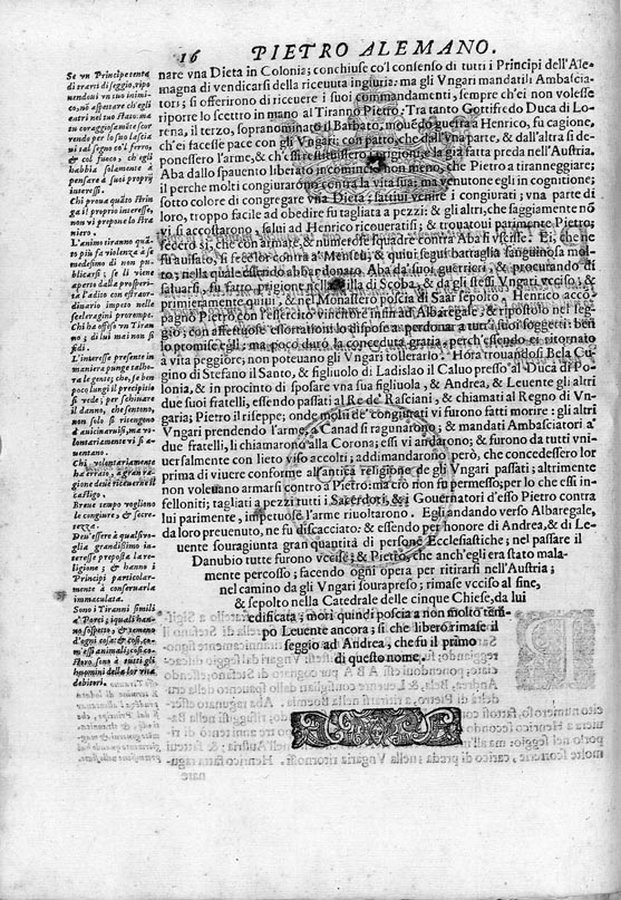 16 PIETRO ALEMANO.
Se vn Principe tenta
di trarsi di seggio, ripo
nendoui vn suo inimi-
co, nō aspettare ch'egli
entri nel tuo stato: ma
tu coraggioso aūte scor
rendo per lo suo lascia
ui tal segno co'l ferro,
& col fuoco, ch'egli
habbia solamente à
pensare à suoi proprij
interessi.
Chi proua quāto strin
ga il proprio interesse,
non vi prepone lo stra
niero.
L'animo tiranno quā-
to più fa violenza à se
medesimo di non pu-
blicarsi; se li viene
aperto dalla prosperi-
tà l'adito con istraor-
dinario impeto nelle
sceleragini prorompe.
Chi ha offeso vn Tiran
no; di lui mai non si
fidi.
L'interesse presente in
maniera punge talho-
ra le genti; che, se ben
poco lungi il precipitio
si vede; per schiuare
il danno, che sentono,
non solo si ritengono
d'auicinaruisi, ma vo-
lontariamente vi si a-
uentano.
Chi volontariamente
ha errato, à gran ra-
gione deue riceuerne il
castigo.
Breue tempo vogliono
le congiure, & secre-
tezza.
Deu'essere à qualsiuo-
glia grandissimo in-
teresse preposta la re-
ligione; & hanno i
Principi particolar-
mente à conseruarla
immaculata.
Sono i Tiranni simili
a' Porci; i quali han-
no sospetto, & temono
d'ogni cosa: & così, co-
m'essi animali; così co-
storo sono à tutti gli
huomini della lor vita
debitori.
nare vna Dieta in Colonia; conchiuse co'l consenso di tutti i Principi dell'Ale-
magna di vendicarsi della riceuuta ingiuria: ma gli Vngari mandatili Ambascia-
tori; si offerirono di riceuere i suoi commandamenti, sempre ch'ei non volesse
riporre lo scettro in mano al Tiranno Pietro. Tra tanto Gottifredo Duca di Lo-
rena, il terzo, sopranominato il Barbato, mouēdo guerra à Henrico, fu cagione,
ch'ei facesse pace con gli Vngari; con patto, che dall'vna parte, & dall'altra si de-
ponessero l'arme, & ch'essi restituissero i prigioni, e la già fatta preda nell'Austria.
Aba dallo spauento liberato incominciò non meno, che Pietro a tiranneggiare;
il perche molti congiurarono contra la vita sua; ma venutone egli in cognitione;
sotto colore di congregare vna Dieta; fattiui venire i congiurati; vna parte di
loro, troppo facile ad obedire fu tagliata a pezzi: & gli altri, che saggiamente nō
vi si accostarono, salui ad Henrico ricoueratisi; & trouatoui parimente Pietro;
fecero sì, che con armate, & numerose squadre contra Aba si vscisse. Ei, che ne
fu auisato, si fece lor contra a' Menfeu; & quiui seguì battaglia sanguinosa mol-
to; nella quale essendo abbandonato Aba da' suoi guerrieri, & procurando di
saluarsi, fu fatto prigione nella Villa di Scoba, & da gli stessi Vngari vcciso; &
primieramente quiui, & nel Monastero poscia di Saar sepolto. Henrico acco-
pagnò Pietro con l'essercito vincitore infin ad Albaregale; & ripostolo nel seg-
gio; con affettuose essortationi lo dispose a perdonar a tutt'i suoi soggetti: ben
lo promise egli: ma poco durò la conceduta gratia, perch'essendo ei ritornato
à vita peggiore; non poteuano gli Vngari tollerarlo. Hora trouandosi Bela Cu-
gino di Stefano il Santo, & figliuolo di Ladislao il Caluo presso al Duca di Po-
lonia, & in procinto di sposare vna sua figliuola, & Andrea, & Leuente gli altri
due suoi fratelli, essendo passati al Re de' Rasciani, & chiamati al Regno di Vn-
garia; Pietro il riseppe; onde molti de' congiurati vi furono fatti morire: gli altri
Vngari prendendo l'arme, a Canad si ragunarono; & mandati Ambasciatori a'
due fratelli, li chiamarono alla Corona; essi vi andarono; & furono da tutti vni-
uersalmente con lieto viso accolti; addimandarono però, che concedessero lor
prima di viuere conforme all'antica religione de gli Vngari passati; altrimente
non voleuano armarsi contro a Pietro: ma ciò non fu permesso; per lo che essi in-
felloniti; tagliati a pezzi tutti i Sacerdoti, & i Gouernatori d'esso Pietro contra
lui parimente, impetuose l'arme riuoltarono. Egli andando verso Albaregale,
da loro preuenuto, ne fu discacciato: & essendo per honore di Andrea, & di Le-
uente souragiunta gran quantità di persone Ecclesiastiche; nel passare il
Danubio tutte furono vccise; & Pietro, che anch'egli era stato mala-
mente percosso; facendo ogni opera per ritirarsi nell'Austria;
nel camino da gli Vngari sourapreso; rimase vcciso al fine,
& sepolto nella Catedrale delle cinque Chiese, da lui
edificata; morì quindi poscia a non molto tem-
po Leuente ancora; sì che libero rimase il
seggio ad Andrea, che fu il primo
di questo nome.